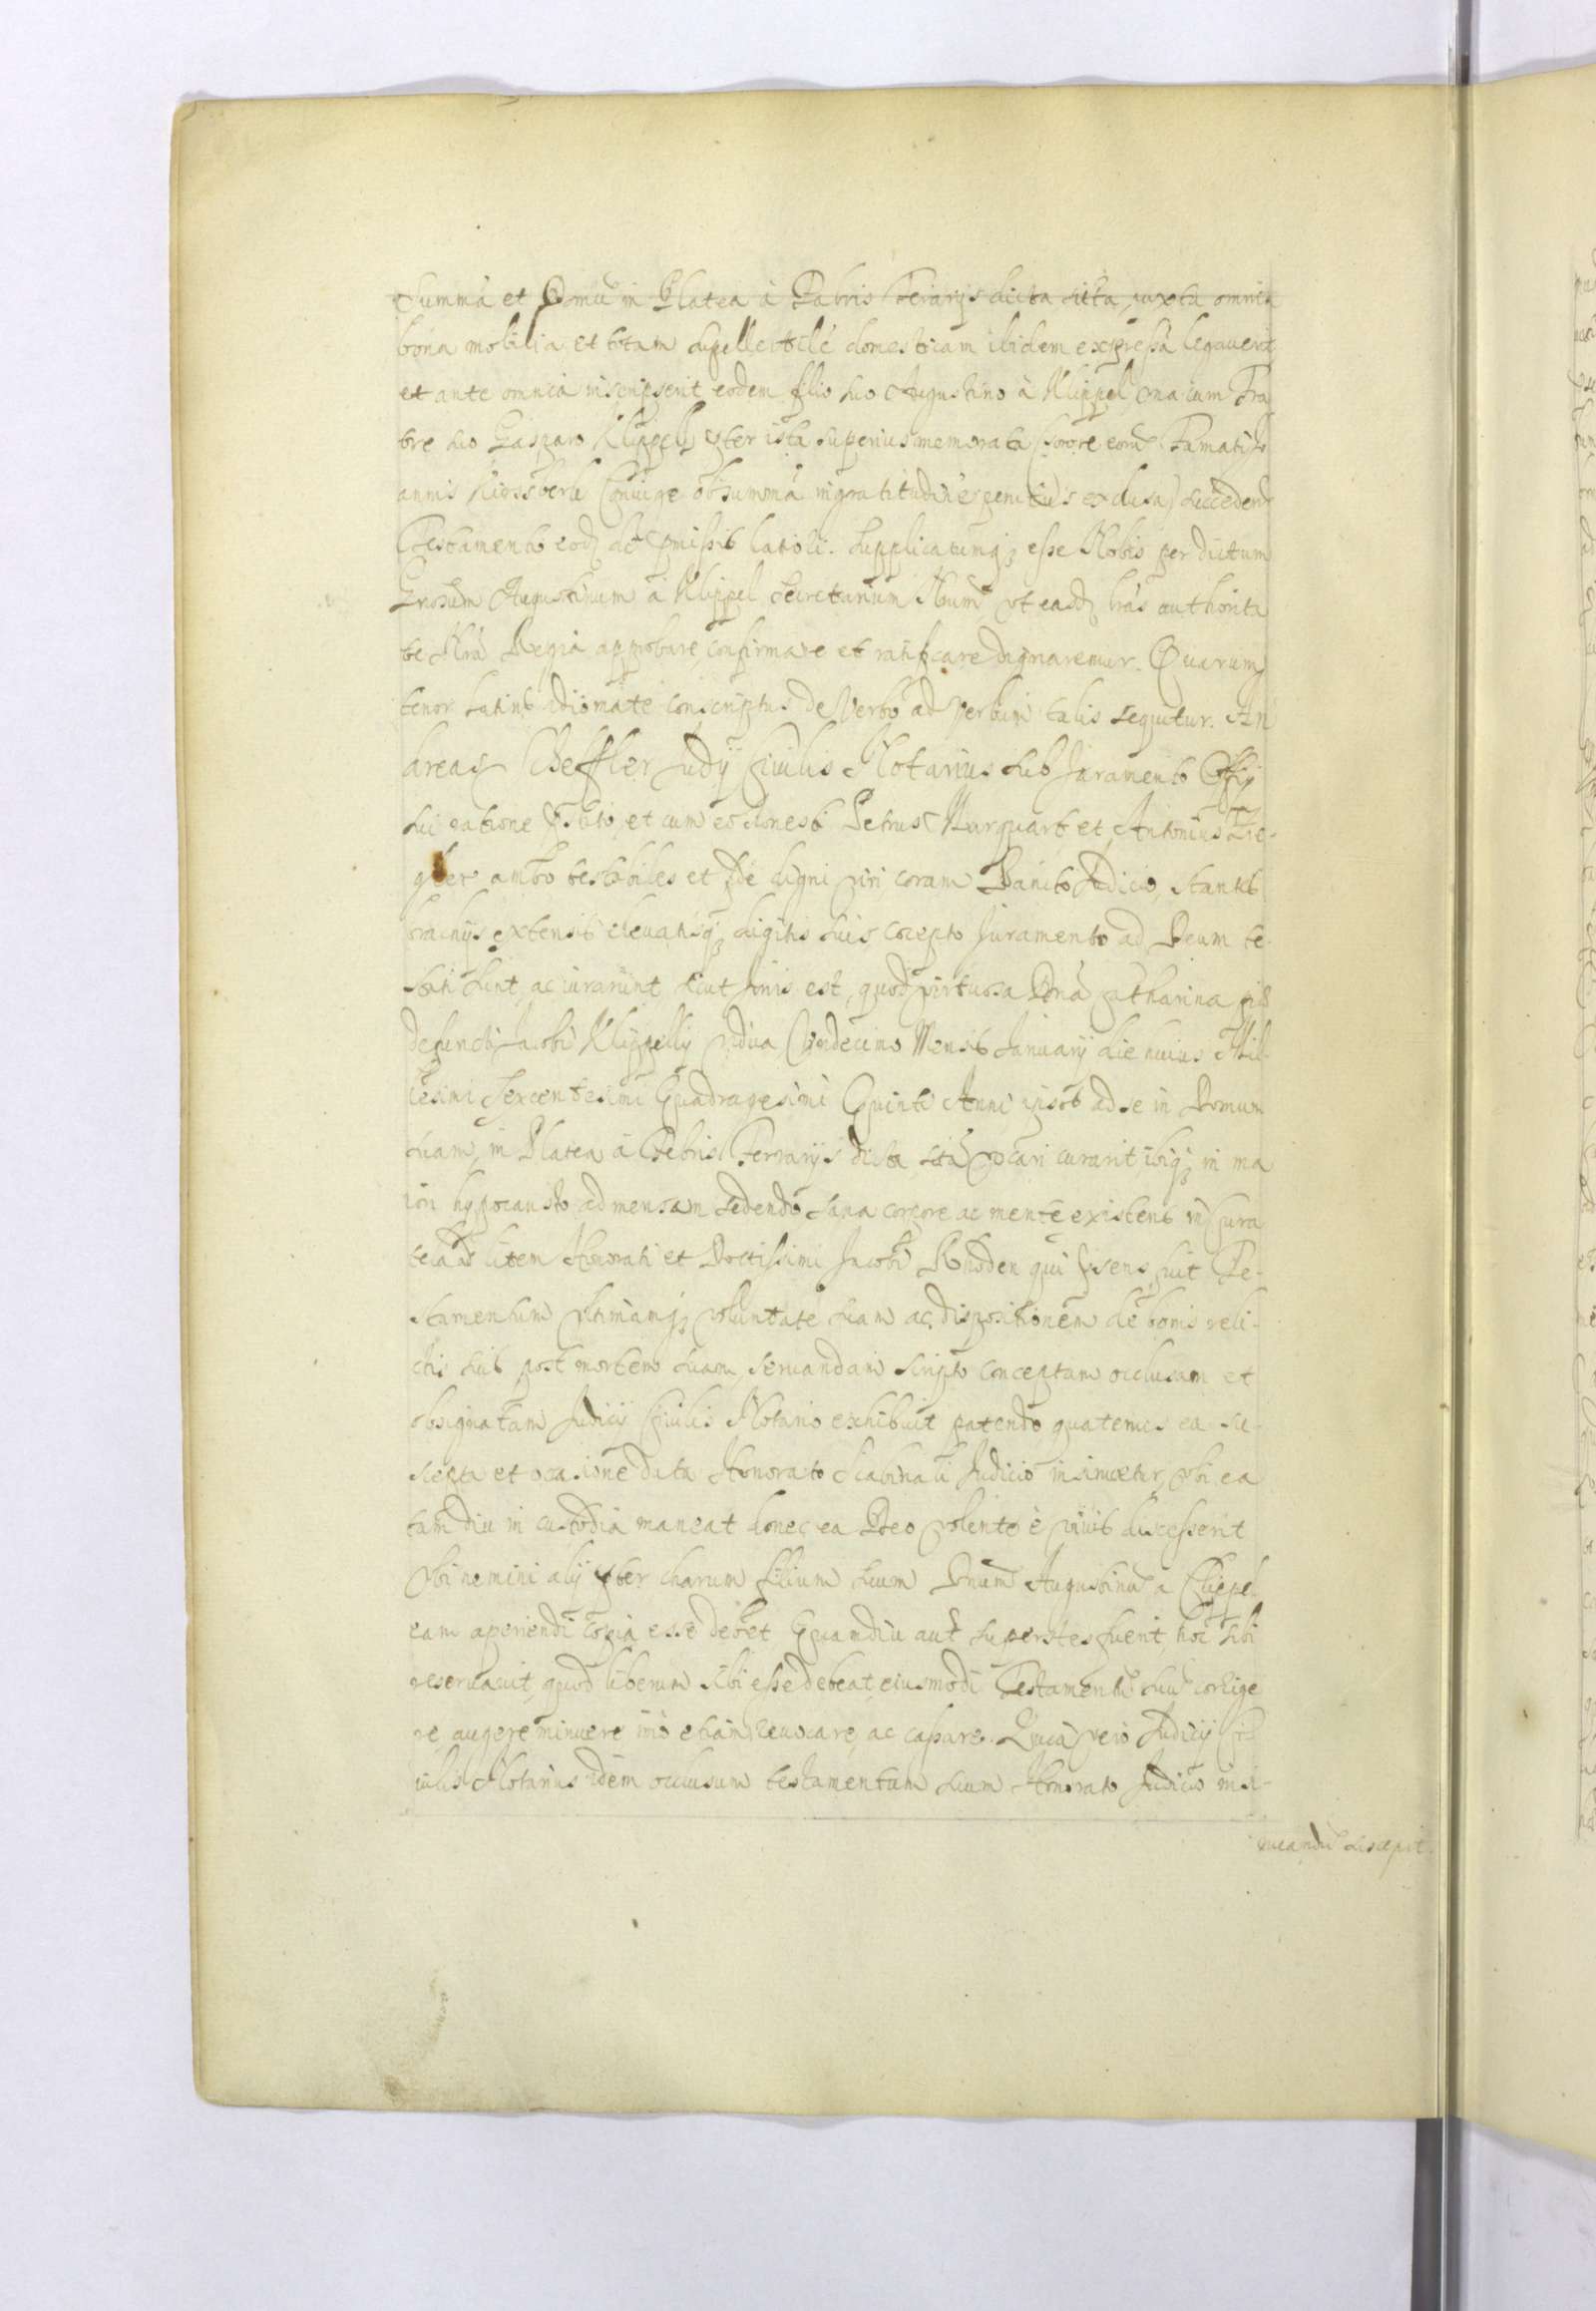 Summa et Domũ in Platea à Fabris Ferarijs dicta sita, iuxta omnia
bona mobilia et totam supellectilẽ domesticam ibidem expressa legauerit
et ante omnia inscripserit eodem filio suo Augustino à Klippel, vna cum Fra
tre suo Gasparo Klippel, pter ista superius memorata (sorore eorũ
annis Coniuge ob summã ingratitudinẽ penitus exclusa) succedend
Testamento eodẽ ac pmissis latori. Supplicatumq; esse Nobis per dictum
Gnosum Augustinum à Klippel Secretarium Nrum vt easdẽ lras authorita
te Nrã Regia approbare, confirmare et ratificare dignaremur. Quarum
tenor Latino idiomate conscriptus de Verbo ad Verbum talis sequitur. An
dreas Scheffler Judij Ciuilis Notarius sub Juramento Offij
sui ratione pstito, et cum eo honesti Petrus Marquart et Antonius Zie-
gler ambo testabiles et fide digni viri coram Banito Judicio, stantes
brachijs extensis eleuatisq; digitis suis coepto Juramento ad Deum te-
stati sunt, ac iurarunt sicut Juris est, quod virtuosa Dna Catharina pie
defuncti Jacobi Klippelij vidua vndecimo Mensis Januarij die huius Mil-
lesimi Sexcentesimi Quadragesimi Quinti Anni ipsos ad se in Domum
suam, in Platea à Fabris Ferrarijs dicta sitã vocari curarit, ibiq; in ma
iori hypocausto ad mensam sedendo sana corpore ac mente existens in cura
tela ad litem Honorati et Doctissimi Jacobi Rhoden qui psens fuit Te-
stamentum vltimamq; voluntatẽ suam ac dispositionem de bonis reli-
ctis suis post mortem suam seruandam scripto conceptam occlusam et
obsignatam Judicij Ciuilis Notario exhibuit petendo quatenus ea su-
scepta et ocasione data Honorato Scabinali Judicio insinuetur, vbi ea
tam diu in custodia maneat donec ea Deo volente è viuis discesserit
Vbi nemini alij pter charum filium suum Dnum Augustinũ a Clippel
eam aperiendi copia esse debet Quamdiu aut superstes fuerit, hoc sibi
reseruauit, quod liberum sibi esse debeat, eiusmodi Testamentũ suũ corrige
re, augere minuere imò etiam reuocare, ac cassare. Quã vero Judicij Ci
uilis Notarius idem occlusum testamentum suum Honorato Judicio insi-
nuandũ suscepit